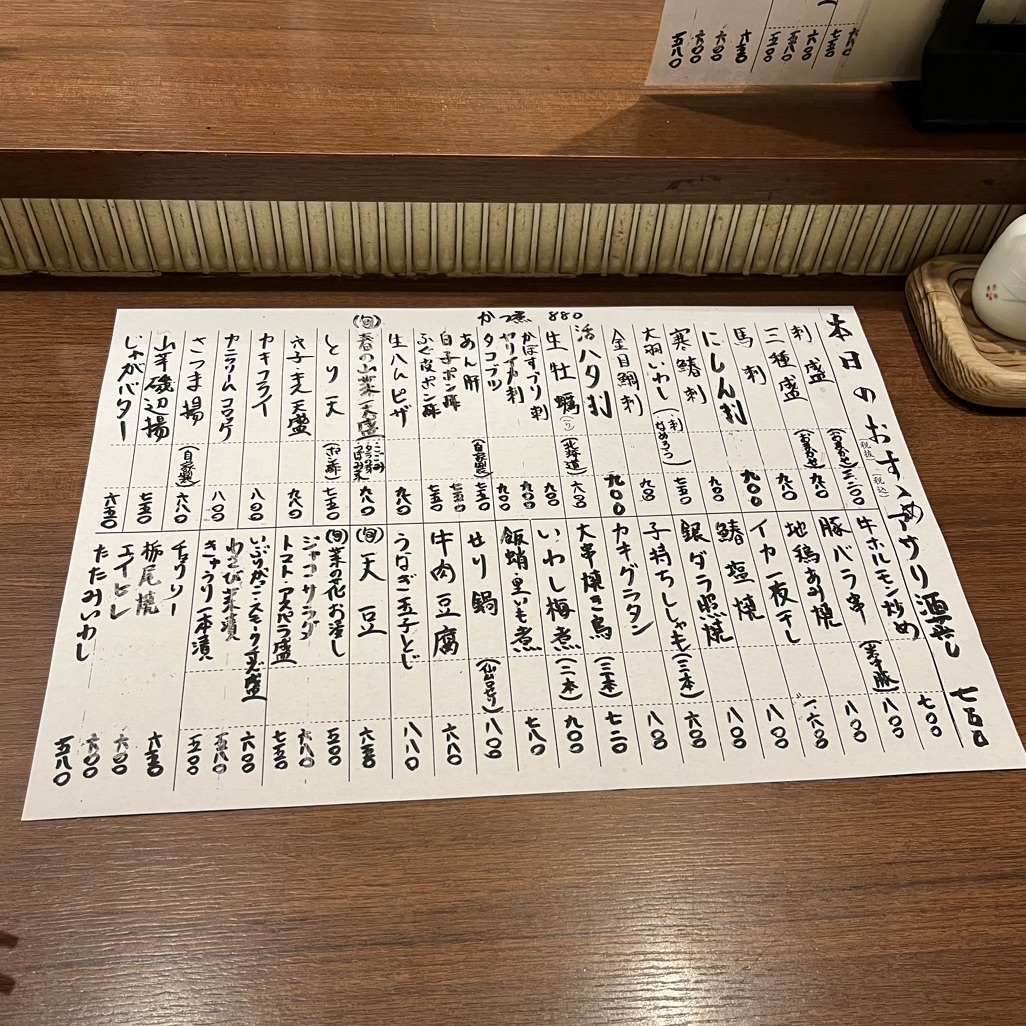 かつ煮 880
本日のおすゝめ
(税抜)(税込)
刺盛 (おまかせ) 三二〇〇
三種盛 (おまかせ) 九八〇
馬刺 九八〇
にしん刺 九〇〇
寒鰆刺 九〇〇
大羽いわし (・刺 ・なめろう) 七五〇
金目鯛刺 九八〇
活ハタ刺 九〇〇
生牡蠣 (北海道) 六八〇
かぼすブリ刺 九〇〇
ヤリイカ刺 九〇〇
タコブツ 九〇〇
あん肝 (自家製) 七五〇
白子ポン酢
ふぐ皮ポン酢 七五〇
生ハムピザ 九八〇
(旬)春の山菜天盛 九八〇
とり天 (ポン酢) 七五〇
穴子・きす天盛 九八〇
カキフライ 八〇〇
カニクリームコロッケ 八〇〇
さつま揚 (自家製) 六八〇
山芋磯辺揚 七五〇
じゃがバター 六五〇
アサリ酒蒸し 七五〇
牛ホルモン炒め 七〇〇
豚バラ串 八〇〇
地鶏あみ焼 八〇〇
イカ一夜干し
鰆塩焼 八〇〇
銀ダラ照焼 八〇〇
子持ちししゃも (三本) 六〇〇
カキグラタン 八〇〇
大串焼き鳥 (三本) 七二〇
いわし梅煮 (二本) 九〇〇
飯蛸・里いも煮 七八〇
せり鍋 (仙台せり) 八〇〇
牛肉豆腐 六八〇
うなぎ玉子とじ 八八〇
(旬)一天豆 六五〇
(旬)菜の花お浸し 五〇〇
ジャコサラダ 六八〇
トマト・アスパラ盛 七五〇
いぶりがっこスモークチーズ盛 六〇〇
わさび菜漬 五八〇
きゅうり一本漬 五〇〇
チョリソー 六五〇
栃尾焼 六〇〇
エイヒレ 六〇〇
たたみいわし 五八〇